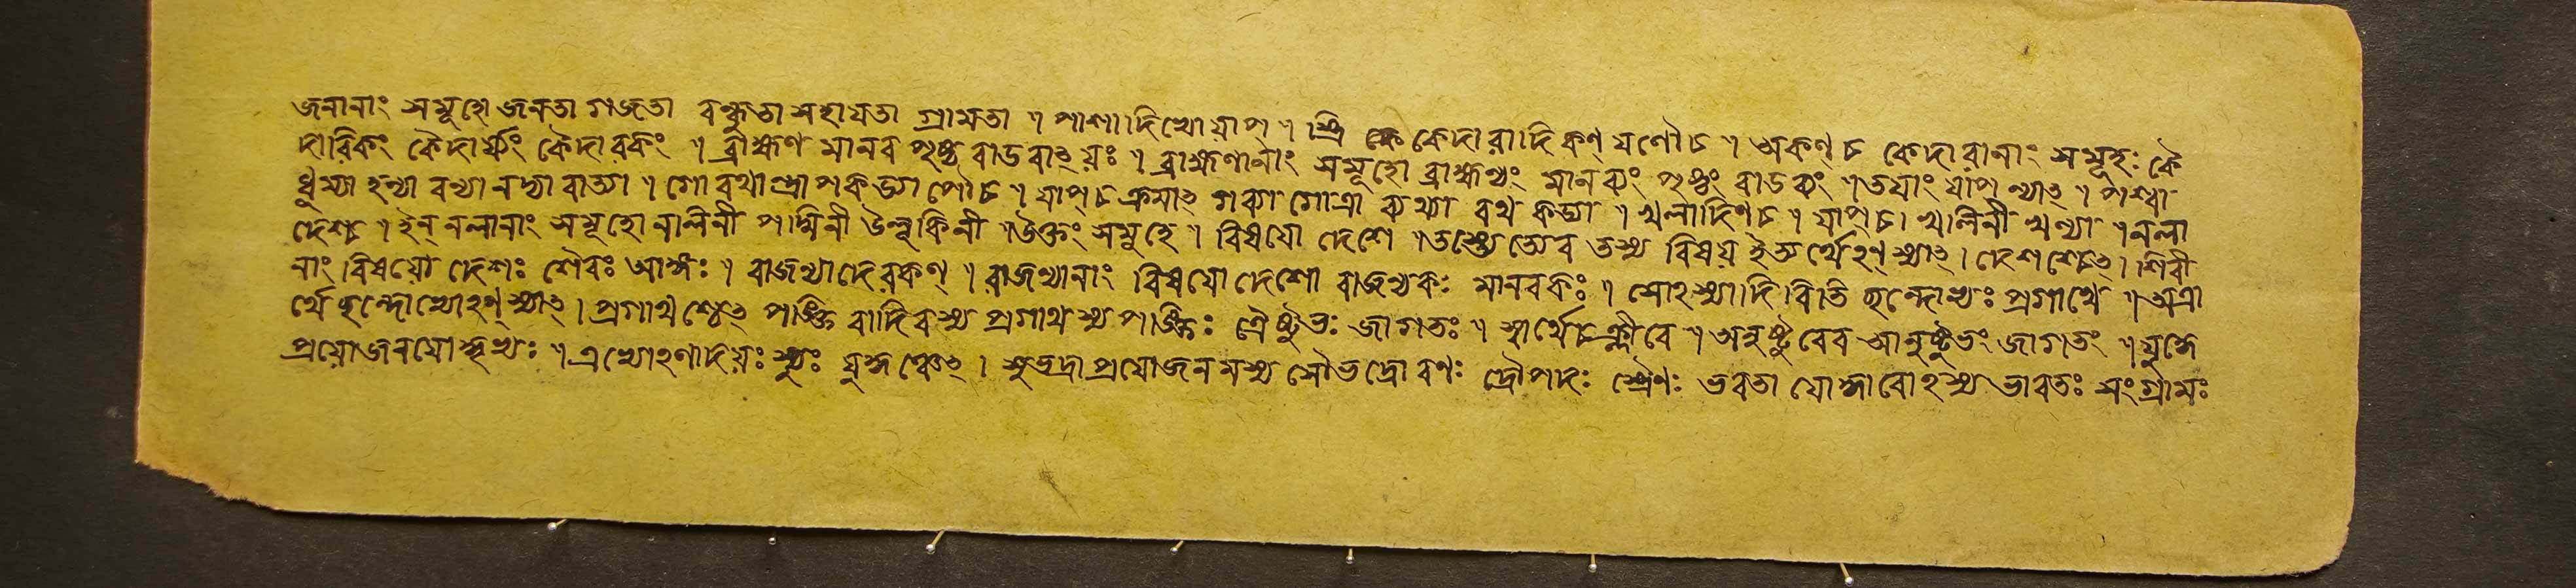 জনানাং সমূহো জনতা গজতা বন্ধুতা সহাযতা গ্রামতা । পাশাদিখ্যোয়াপ্ । স্ত্রি কেদারাদিকণ্ যণৌচ । অকণ্ চ কেদারানাং সমূহঃ কৈ
দারিকং কৈদার্য্যং কৈদারকং । ব্রাহ্মণ মানব পৃষ্ঠ বাডবাৎ য়ঃ । ব্রাহ্মণানাং সমূহো ব্রাহ্মণ্যং মানব্যং পৃষ্ঠ্যং বাডব্যং । তযাং যাপ্ স্যাৎ । পাশ্যা
ধূম্যা হন্যা বন্যা নদ্যা বাত্যা । গোরথাত্রা পকড্যাপৌচ । যাপ্ চ ক্রমাৎ গব্যা গোত্রা রথ্যা রথকড্যা । খলাদিণ্ চ । যাপ্ চ। খলিনী খন্যা । নলা
দেশ্চ । ইন্ নলানাং সমূহো নালিনী পদ্মিনী উলূকিনী । উক্তং সমূহে । বিষযো দেশে । তস্যেত্যেব তস্য বিষয় ইত্যর্থেঽণ্ স্যাৎ । দেশশ্চেৎ । শিবী
নাং বিষয়ো দেশঃ শৈবঃ আঙ্গঃ । রাজন্যাদেরকণ্ । রাজন্যানাং বিষযো দেশো রাজন্যকঃ মানবকঃ । সোঽস্যাদিরিতি ছন্দোভ্যঃ প্রগাথে । অত্রা
র্থে ছন্দোভ্যোঽণ্ স্যাৎ । প্রগাথশ্চেৎ পংক্তিরাদিরস্য প্রগাথস্য পাংক্তঃ ত্রৈষ্টুভঃ জাগতঃ । স্বার্থেচ ক্লীবে । অনুষ্টুবেব আনুষ্টুভং জাগতং । যুদ্ধে
প্রয়োজনযোদ্ধৃভ্যঃ । এভ্যোঽণাদিয়ঃ স্যুঃ যুদ্ধঞ্চেৎ । সুভদ্রা প্রযোজনমস্য সৌভদ্রো রণঃ দ্রৌপদঃ স্ত্রৈণঃ ভরতা যোদ্ধারোঽস্য ভারতঃ সংগ্রামঃ